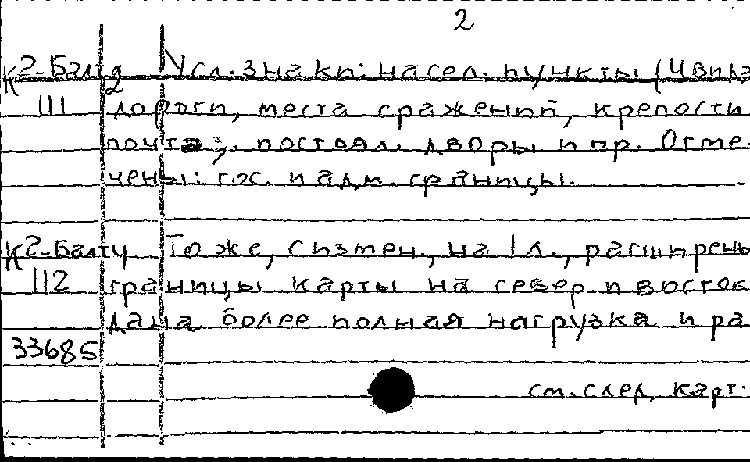 2
К2-Балт Усл. знаки: насел. пункты (4 вида
111 дороги, места сражений, крепости
почтов., постоял. дворы и пр. Отме-
чены: гос. и адм. границы.
К2-Балт То же, с измен., на 1 л., расширены
112 границы карты на север и восток
Дана более полная нагрузка и ра
33685
см. след. карт.